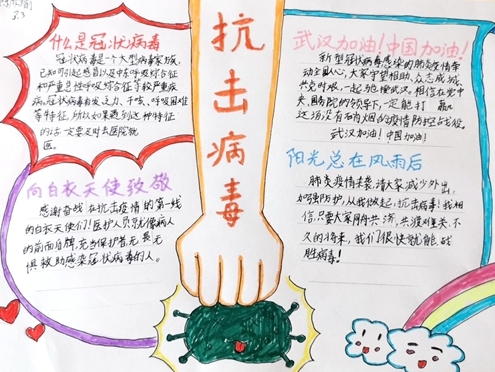 3.3
什么是冠状病毒
冠状病毒是一个大型病毒家族,
已知可引起感冒以及中东呼吸综合征
和严重急性呼吸综合征等较严重疾
病。冠状病毒有发乏力、干咳、呼吸困难
等特征,所以如果遇到这种特征
的话一定要及时去医院就
医。
向白衣天使致敬
感谢奋战在抗击疫情的第一线
的白衣天使们!医护人员就像病人
的前面盾牌,充当保护者,无畏无
惧救助感染冠状病毒的人。
抗击病毒
武汉加油!中国加油!
新型冠状病毒感染的肺炎疫情牵
动全国人心,大家守望相助、众志成城,
共克时艰,一起驰援武汉。相信在党中
央、国务院的领导下,一定能打赢
这场没有硝烟的疫情防控战役。
武汉加油!中国加油!
阳光总在风雨后
肺炎疫情来袭,请大家减少外出,
加强防护,从我做起,抗击病毒!我相
信,只要大家同舟共济,共渡难关,不
久的将来,我们很快就能战
胜病毒!